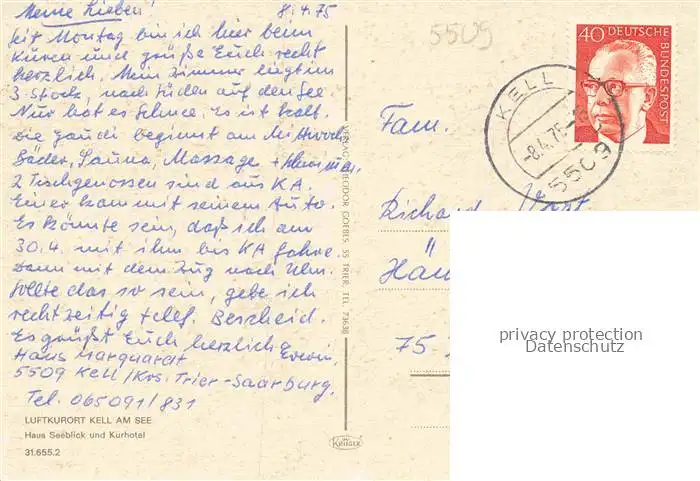 Meine Lieben! 8.4.75
Seit Montag bin ich hier beim
Kuren und grüße Euch recht
herzlich. Mein Zimmer liegt im
3. Stock, nach Süden auf den See.
Nur hat es Schnee. Es ist kalt.
Die Gaudi beginnt am Mittwoch
Bäder, Sauna, Massage +
2 Tischgenossen sind aus KA.
Einer kam mit seinem Auto.
Es könnte sein, daß ich am
30.4. mit ihm bis KA fahre.
Dann mit dem Zug nach Ulm.
Sollte das so sein, gebe ich
rechtzeitig telef. Bescheid.
Es grüßt Euch herzlich
Erwin.
Haus Marquardt
5509 Kell/Krs. Trier-Saarburg.
Tel. 065091/831
LUFTKURORT KELL AM SEE
Haus Seeblick und Kurhotel
31.655.2
VERLAG THEODOR GOEBES, 55 TRIER, TEL. 73636
KRÜGER
5509
40 DEUTSCHE BUNDESPOST
KELL
-8.4.75
5509
Fam.
Richard
75
privacy protection
Datenschutz